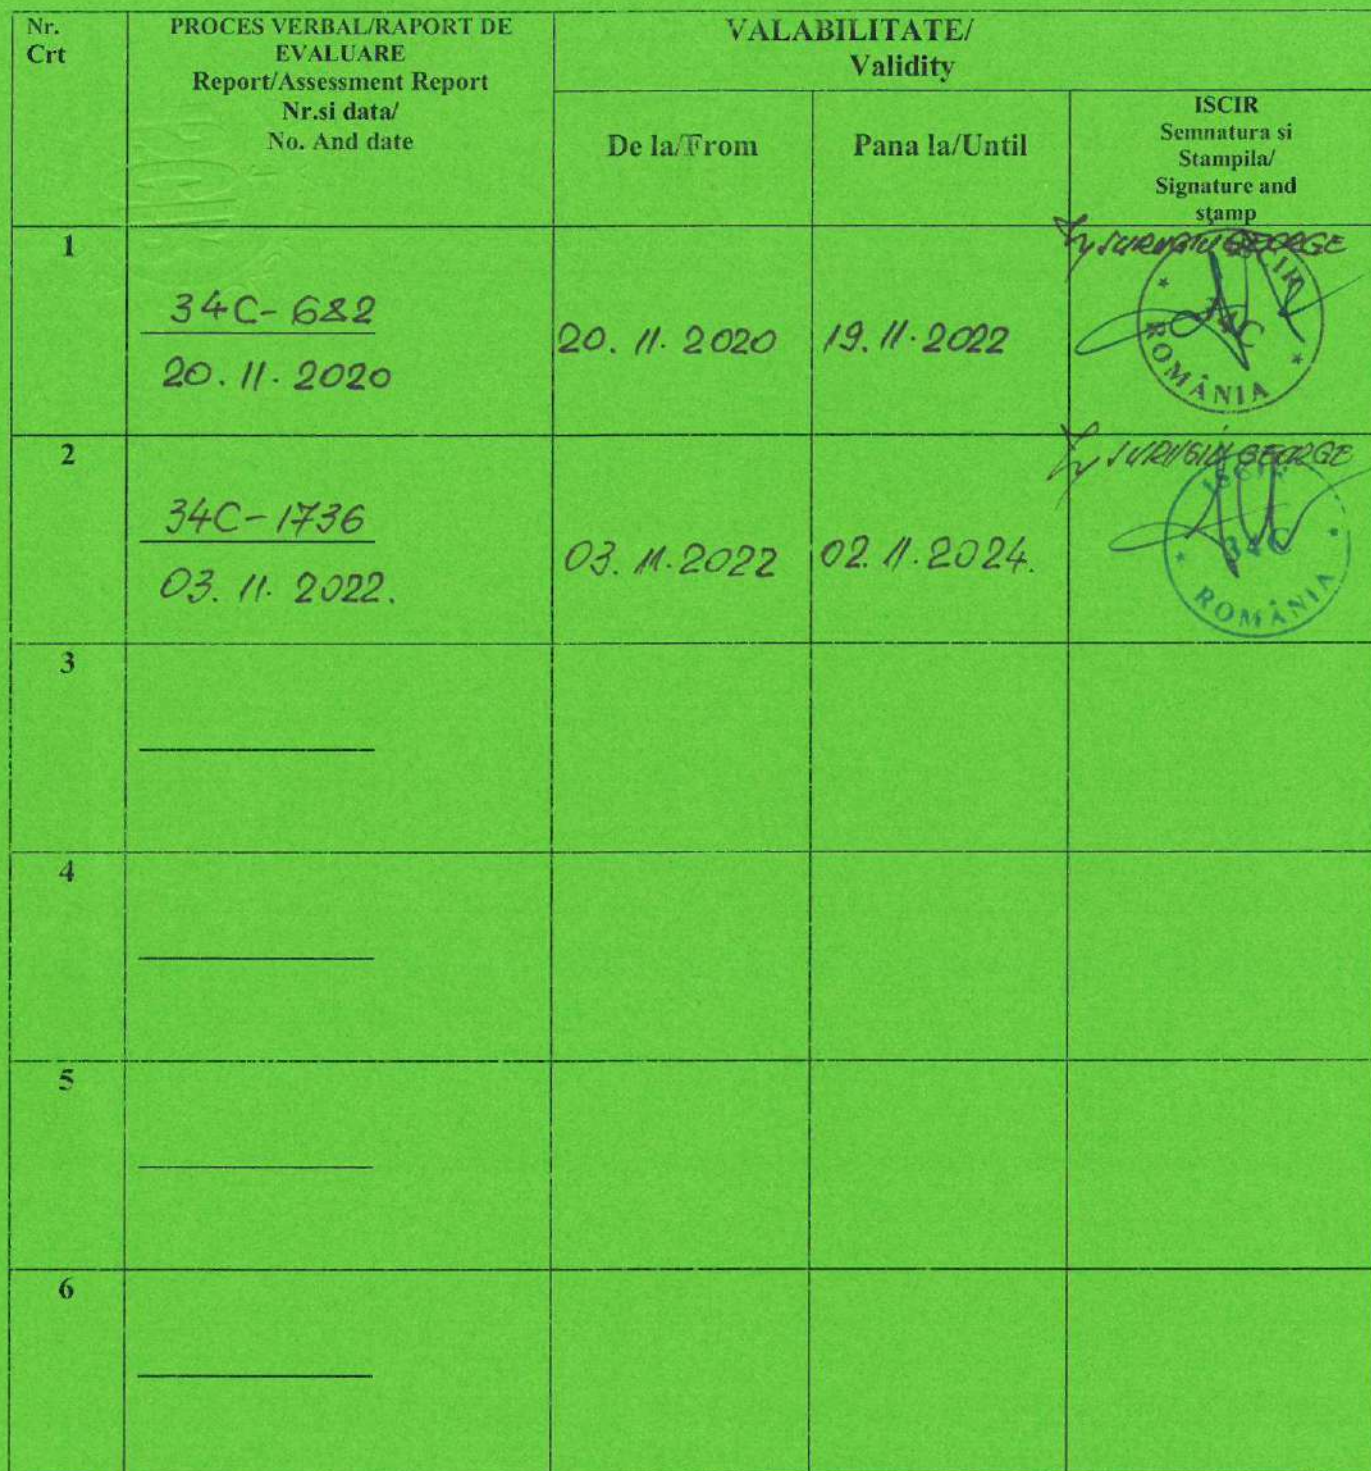 Nr.
Crt
PROCES VERBAL/RAPORT DE
EVALUARE
Report/Assessment Report
Nr.si data/
No. And date
VALABILITATE/
Validity
De la/From
Pana la/Until
ISCIR
Semnatura si
Stampila/
Signature and
stamp
1
34C-682
20.11.2020
20.11.2020
19.11.2022
GEORGE
34C
ROMÂNIA
2
34C-1736
03.11.2022.
03.11.2022
02.11.2024.
GEORGE
ISCIR
34C
ROMÂNIA
3
4
5
6